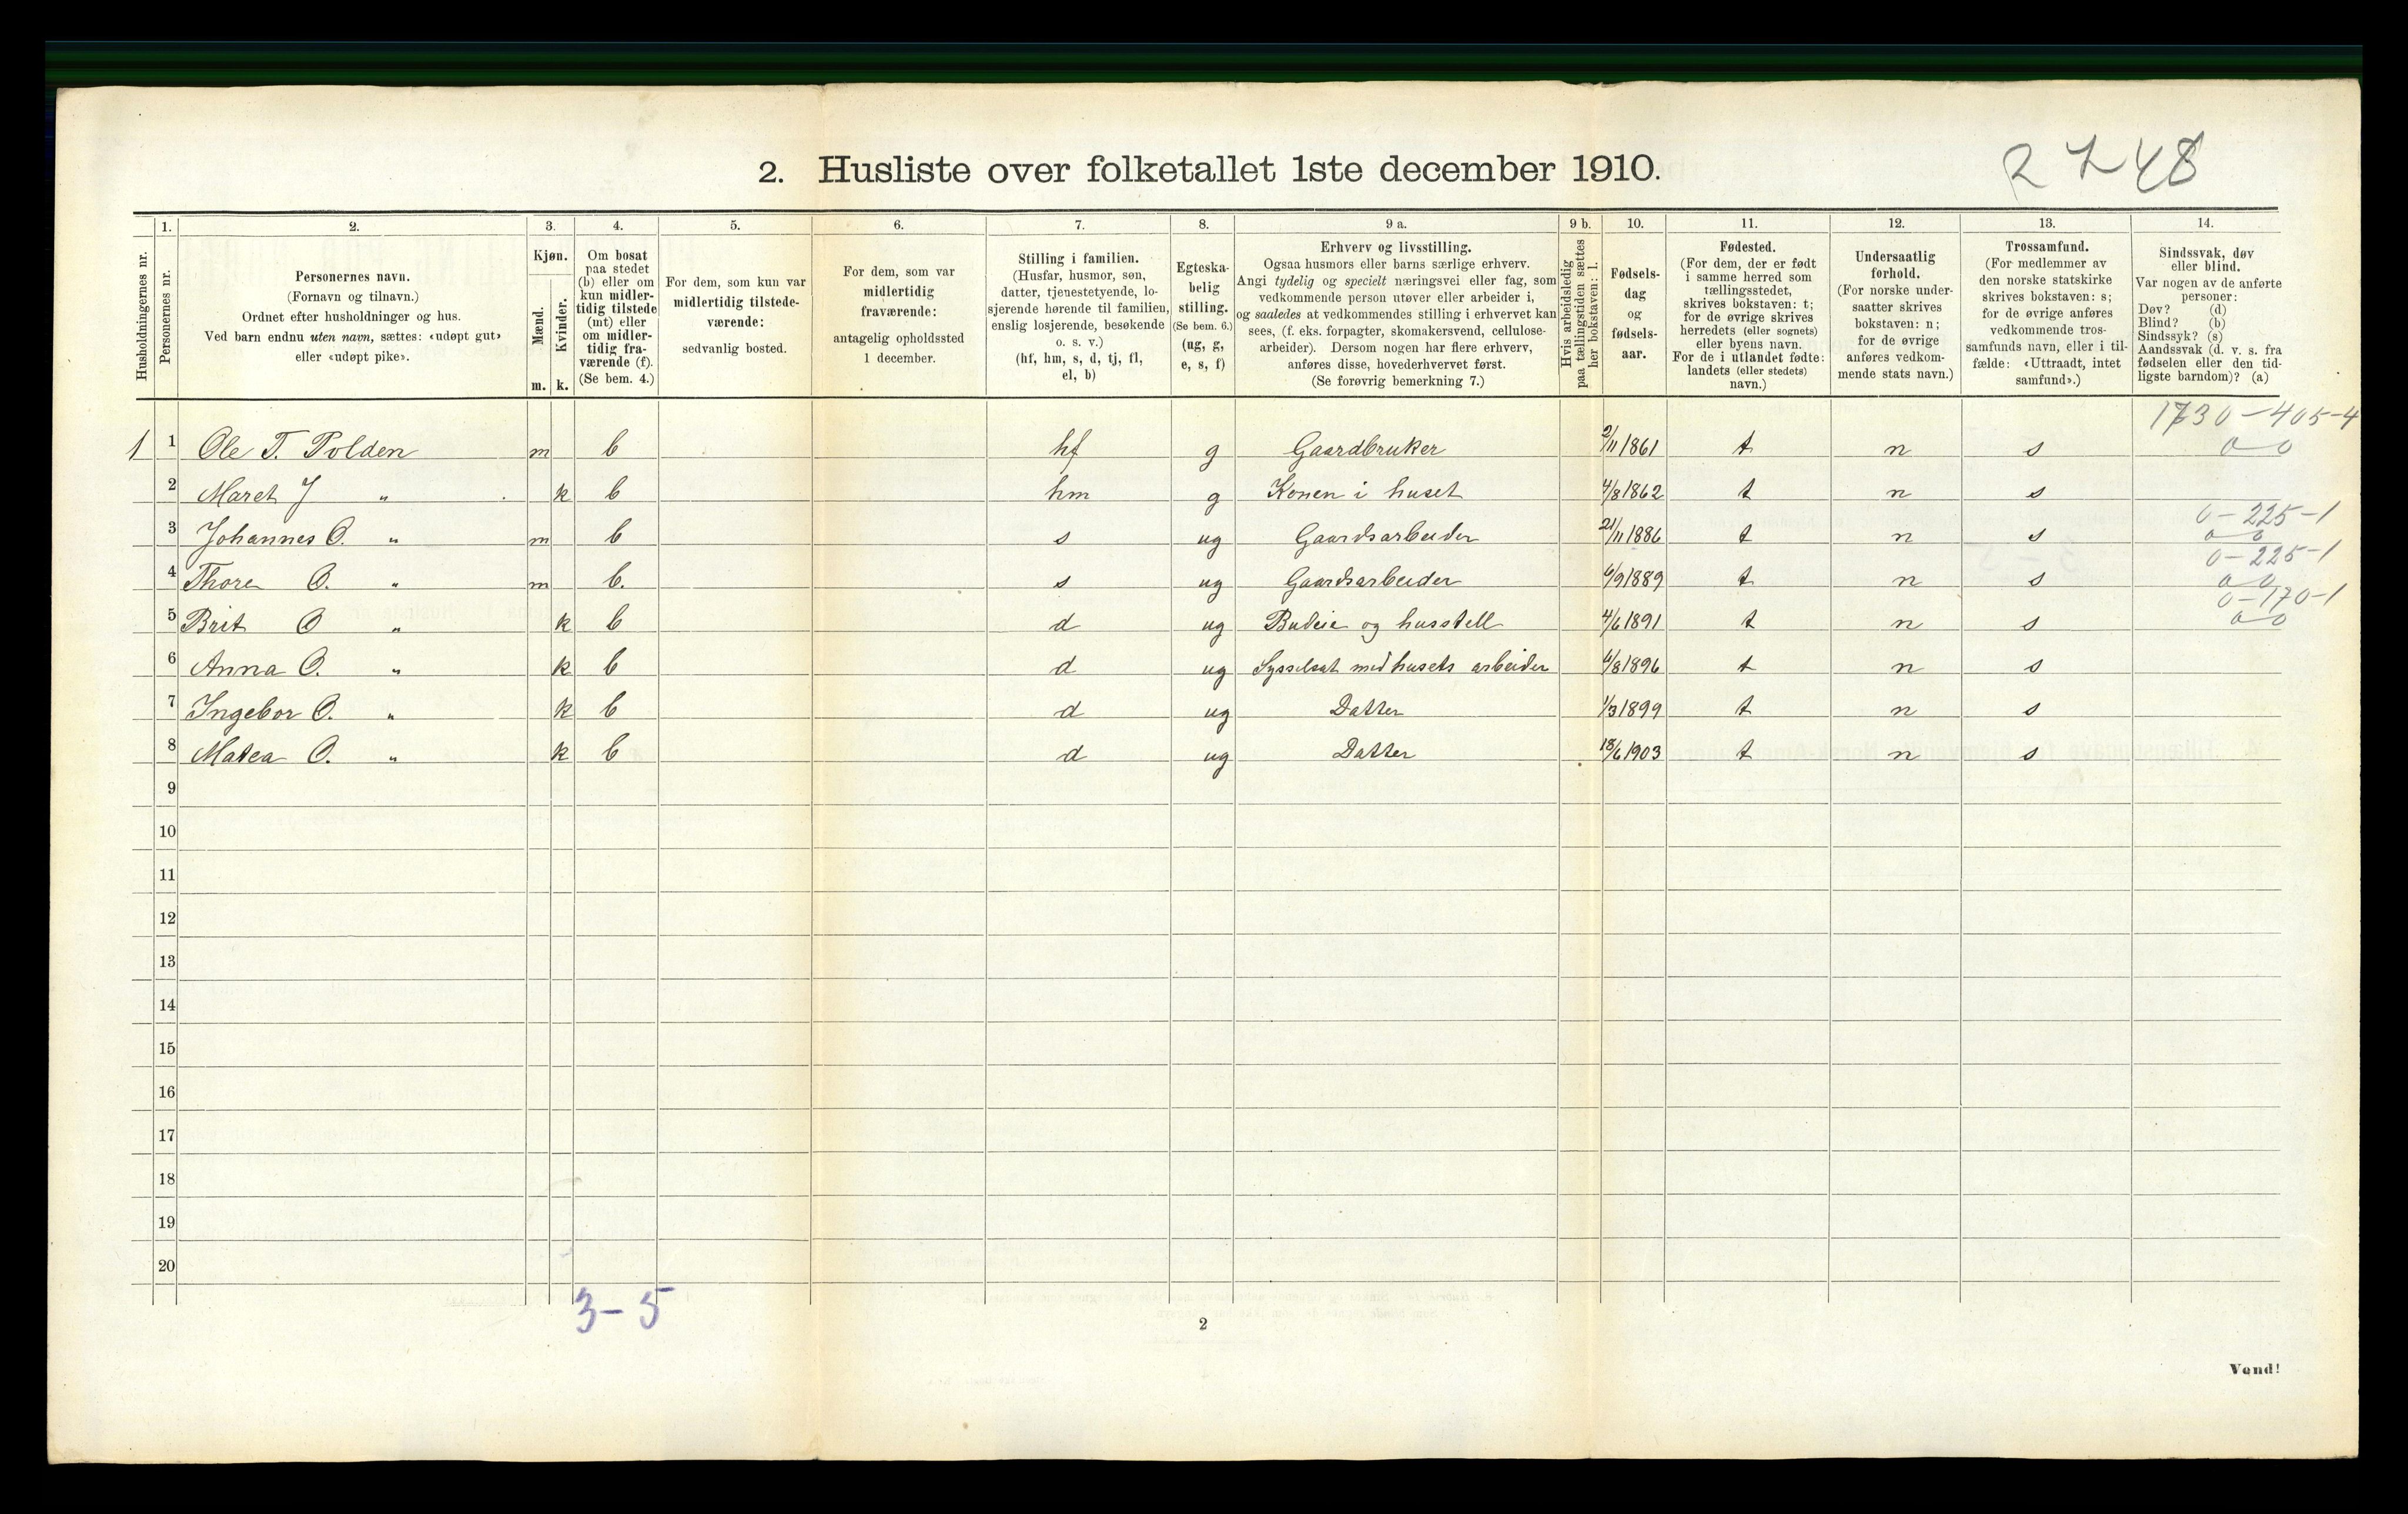 2. Husliste over folketallet 1ste december 1910.
2 7 48
Husholdningernes nr.
1. Personernes nr.
2. Personernes navn.
(Fornavn og tilnavn.)
Ordnet efter husholdninger og hus.
Ved barn endnu uten navn, sættes: «udøpt gut»
eller «udøpt pike».
3. Kjøn.
Mænd. m.
Kvinder. k.
4. Om bosat
paa stedet
(b) eller om
kun midler-
tidig tilstede
(mt) eller
om midler-
tidig fra-
værende (f).
(Se bem. 4.)
5. For dem, som kun var
midlertidig tilstede-
værende:
sedvanlig bosted.
6. For dem, som var
midlertidig
fraværende:
antagelig opholdssted
1 december.
7. Stilling i familien.
(Husfar, husmor, søn,
datter, tjenestetyende, lo-
sjerende hørende til familien,
enslig losjerende, besøkende
o. s. v.)
(hf, hm, s, d, tj, fl,
el, b)
8. Egteska-
belig
stilling.
(Se bem. 6.)
(ug, g,
e, s, f)
9 a. Erhverv og livsstilling.
Ogsaa husmors eller barns særlige erhverv.
Angi tydelig og specielt næringsvei eller fag, som
vedkommende person utøver eller arbeider i,
og saaledes at vedkommendes stilling i erhvervet kan
sees, (f. eks. forpagter, skomakersvend, cellulose-
arbeider). Dersom nogen har flere erhverv,
anføres disse, hovederhvervet først.
(Se forøvrig bemerkning 7.)
9 b. Hvis arbeidsledig
paa tællingstiden sættes
her bokstaven: l.
10. Fødsels-
dag
og
fødsels-
aar.
11. Fødested.
(For dem, der er født
i samme herred som
tællingsstedet,
skrives bokstaven: t;
for de øvrige skrives
herredets (eller sognets)
eller byens navn.
For de i utlandet fødte:
landets (eller stedets)
navn.)
12. Undersaatlig
forhold.
(For norske under-
saatter skrives
bokstaven: n;
for de øvrige
anføres vedkom-
mende stats navn.)
13. Trossamfund.
(For medlemmer av
den norske statskirke
skrives bokstaven: s;
for de øvrige anføres
vedkommende tros-
samfunds navn, eller i til-
fælde: «Uttraadt, intet
samfund».)
14. Sindssvak, døv
eller blind.
Var nogen av de anførte
personer:
Døv? (d)
Blind? (b)
Sindssyk? (s)
Aandssvak (d. v. s. fra
fødselen eller den tid-
ligste barndom)? (a)
1730-405-4
1 1 Ole T. Polden m b hf g Gaardbruker 2/11 1861 t n s 0 0
2 Maret J " k b hm g Konen i huset 4/8 1862 t n s
0-225-1
3 Johannes O. " m b s ug Gaardsarbeider 21/11 1886 t n s 0 0
0-225-1
4 Thore O. " m b. s ug Gaardsarbeider 6/9 1889 t n s 0 0
0-170-1
5 Brit O " k b d ug Budeie og husstell 4/6 1891 t n s 0 0
6 Anna O. " k b d ug Sysselsat med husets arbeider 6/8 1896 t n s
7 Ingebor O. " k b d ug Datter 1/3 1899 t n s
8 Matea O. " k b d ug Datter 18/6 1903 t n s
9
10
11
12
13
14
15
16
17
18
19
20
3-5
2
Vend!